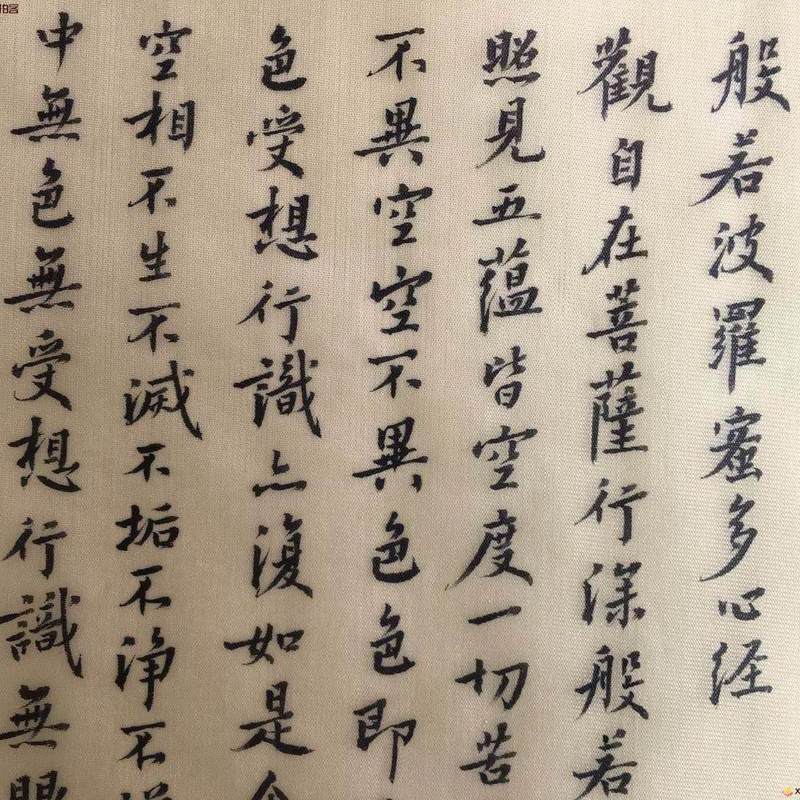 般若波羅蜜多心经
觀自在菩薩行深般若
照見五蘊皆空度一切苦
不異空空不異色色即
色受想行識亦復如是
空相不生不滅不垢不浄不
中無色無受想行識無眼